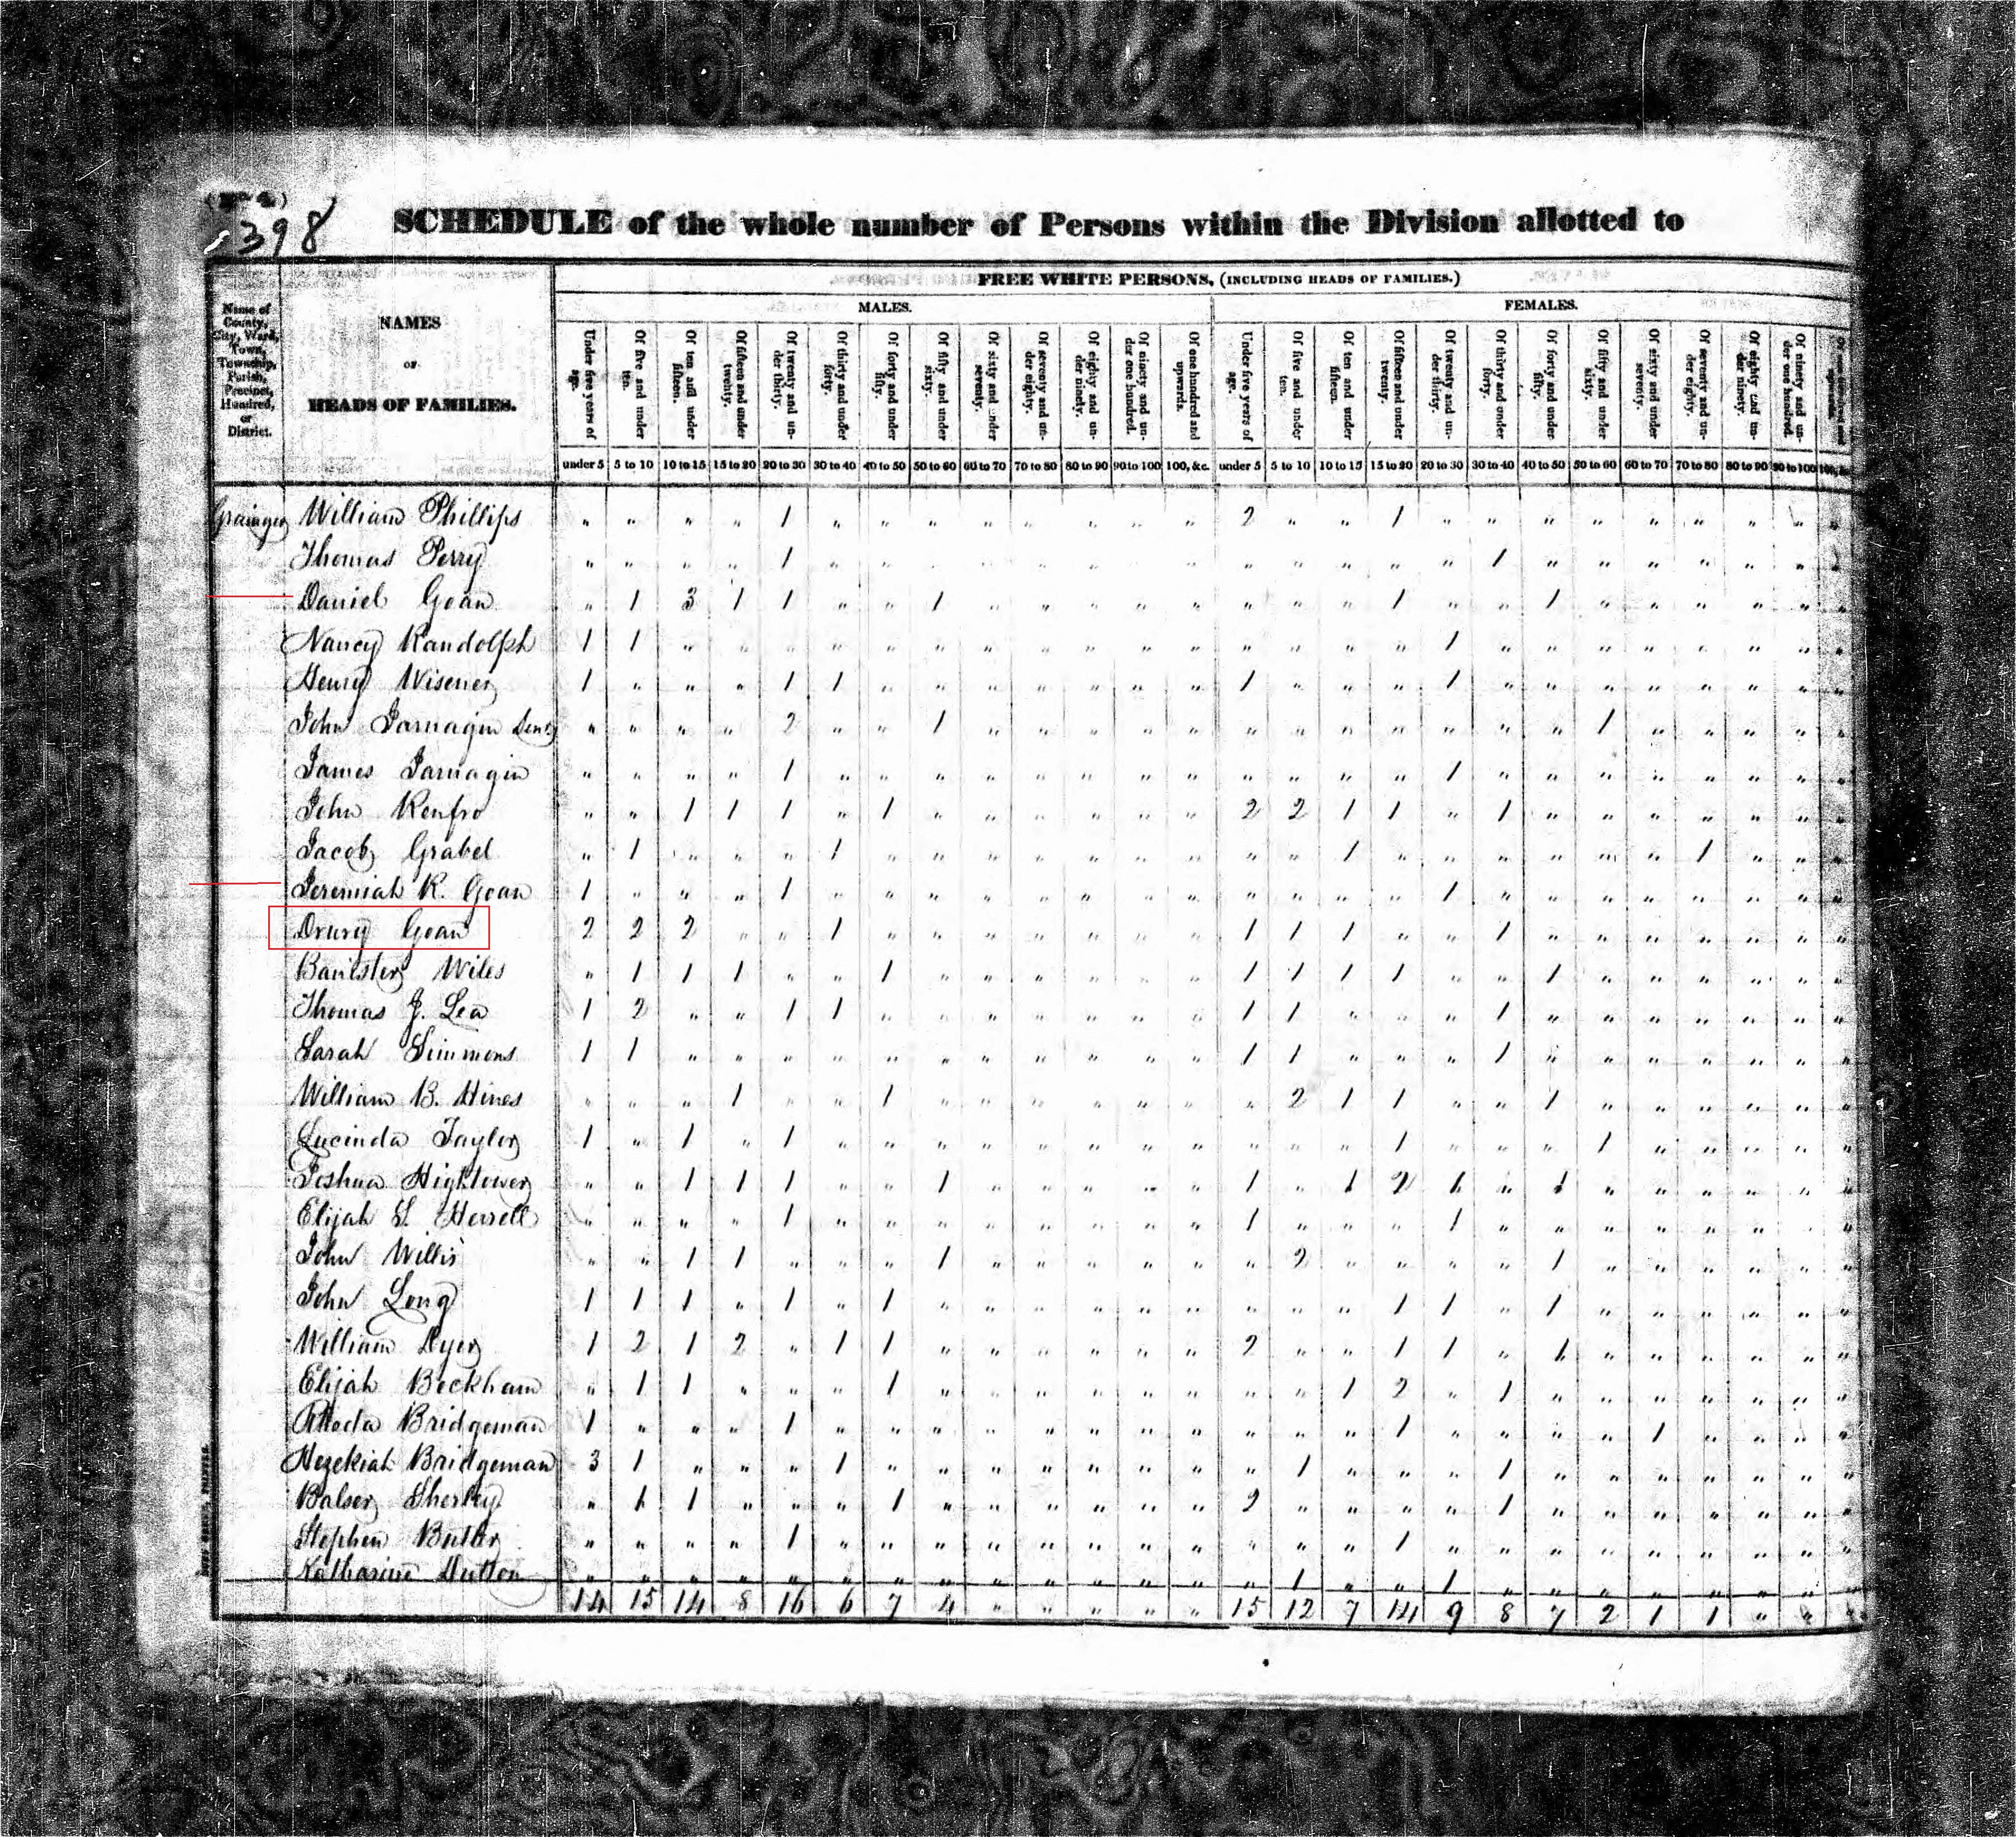 398
SCHEDULE of the whole number of Persons within the Division allotted to
FREE WHITE PERSONS, (INCLUDING HEADS OF FAMILIES.)
MALES. FEMALES.
Name of County, City, Ward, Town, Township, Parish, Precinct, Hundred, or District.
NAMES
OF
HEADS OF FAMILIES.
Under five years of age. Of five and under ten. Of ten and under fifteen. Of fifteen and under twenty. Of twenty and under thirty. Of thirty and under forty. Of forty and under fifty. Of fifty and under sixty. Of sixty and under seventy. Of seventy and under eighty. Of eighty and under ninety. Of ninety and under one hundred. Of one hundred and upwards. Under five years of age. Of five and under ten. Of ten and under fifteen. Of fifteen and under twenty. Of twenty and under thirty. Of thirty and under forty. Of forty and under fifty. Of fifty and under sixty. Of sixty and under seventy. Of seventy and under eighty. Of eighty and under ninety. Of ninety and under one hundred.
under 5 5 to 10 10 to 15 15 to 20 20 to 30 30 to 40 40 to 50 50 to 60 60 to 70 70 to 80 80 to 90 90 to 100 100, &c. under 5 5 to 10 10 to 15 15 to 20 20 to 30 30 to 40 40 to 50 50 to 60 60 to 70 70 to 80 80 to 90 90 to 100
Grainger William Phillips " " " " 1 " " " " " " " " 2 " " 1 " " " " " " " " "
Thomas Perry " " " " 1 " " " " " " " " " " " " " 1 " " " " " " "
Daniel Goan " 1 3 1 1 " " 1 " " " " " " " " 1 " " 1 " " " " " "
Nancy Randolph 1 1 " " " " " " " " " " " " " " " 1 " " " " " " " "
Henry Wisener 1 " " " 1 1 " " " " " " " 1 " " " 1 " " " " " " " "
John Jarnagin Senr " " " " 2 " " 1 " " " " " " " " " " " " 1 " " " " "
James Jarnagin " " " " 1 " " " " " " " " " " " " 1 " " " " " " " "
John Renfro " " 1 1 1 " 1 " " " " " " 2 2 1 1 " 1 " " " " " " "
Jacob Grabel " 1 " " " 1 " " " " " " " " " 1 " " " " " " 1 " " "
Jeremiah R. Goan 1 " " " 1 " " " " " " " " " " " " 1 " " " " " " " "
Drury Goan 2 2 2 " " 1 " " " " " " " 1 1 1 " " 1 " " " " " " "
Banister Wiles " 1 1 1 " " 1 " " " " " " 1 1 1 1 " " 1 " " " " " "
Thomas J. Lea 1 2 " " 1 1 " " " " " " " 1 1 " " " 1 " " " " " " "
Sarah Simmons 1 1 " " " " " " " " " " " 1 1 " " " 1 " " " " " " "
William B. Hines " " " 1 " " 1 " " " " " " " 2 1 1 " " 1 " " " " " "
Lucinda Taylor 1 " 1 " 1 " " " " " " " " " " " 1 " " " 1 " " " " "
Joshua Hightower " " 1 1 1 " " 1 " " " " " 1 " 1 2 1 " 1 " " " " " "
Elijah S. Herrell " " " " 1 " " " " " " " " 1 " " " 1 " " " " " " " "
John Willis " " 1 1 " " " 1 " " " " " " 2 " " " " 1 " " " " " "
John Long 1 1 1 " 1 " 1 " " " " " " " " " 1 1 " 1 " " " " " "
William Dyer 1 2 1 2 " 1 1 " " " " " " 2 " " 1 1 " 1 " " " " " "
Elijah Beckham " 1 1 " " " 1 " " " " " " " " 1 2 " 1 " " " " " " "
Rhoda Bridgeman 1 " " " 1 " " " " " " " " " " " 1 " " " " 1 " " " "
Hezekiah Bridgeman 3 1 " " " 1 " " " " " " " " 1 " " " 1 " " " " " " "
Balser Sherley " 1 1 " " " 1 " " " " " " 2 " " " " 1 " " " " " " "
Stephen Butler " " " " 1 " " " " " " " " " " " 1 " " " " " " " " "
Katharine Dutton " " " " " " " " " " " " " " 1 " " 1 " " " " " " " "
14 15 14 8 16 6 7 4 " " " " " 15 12 7 14 9 8 7 2 1 1 " " "